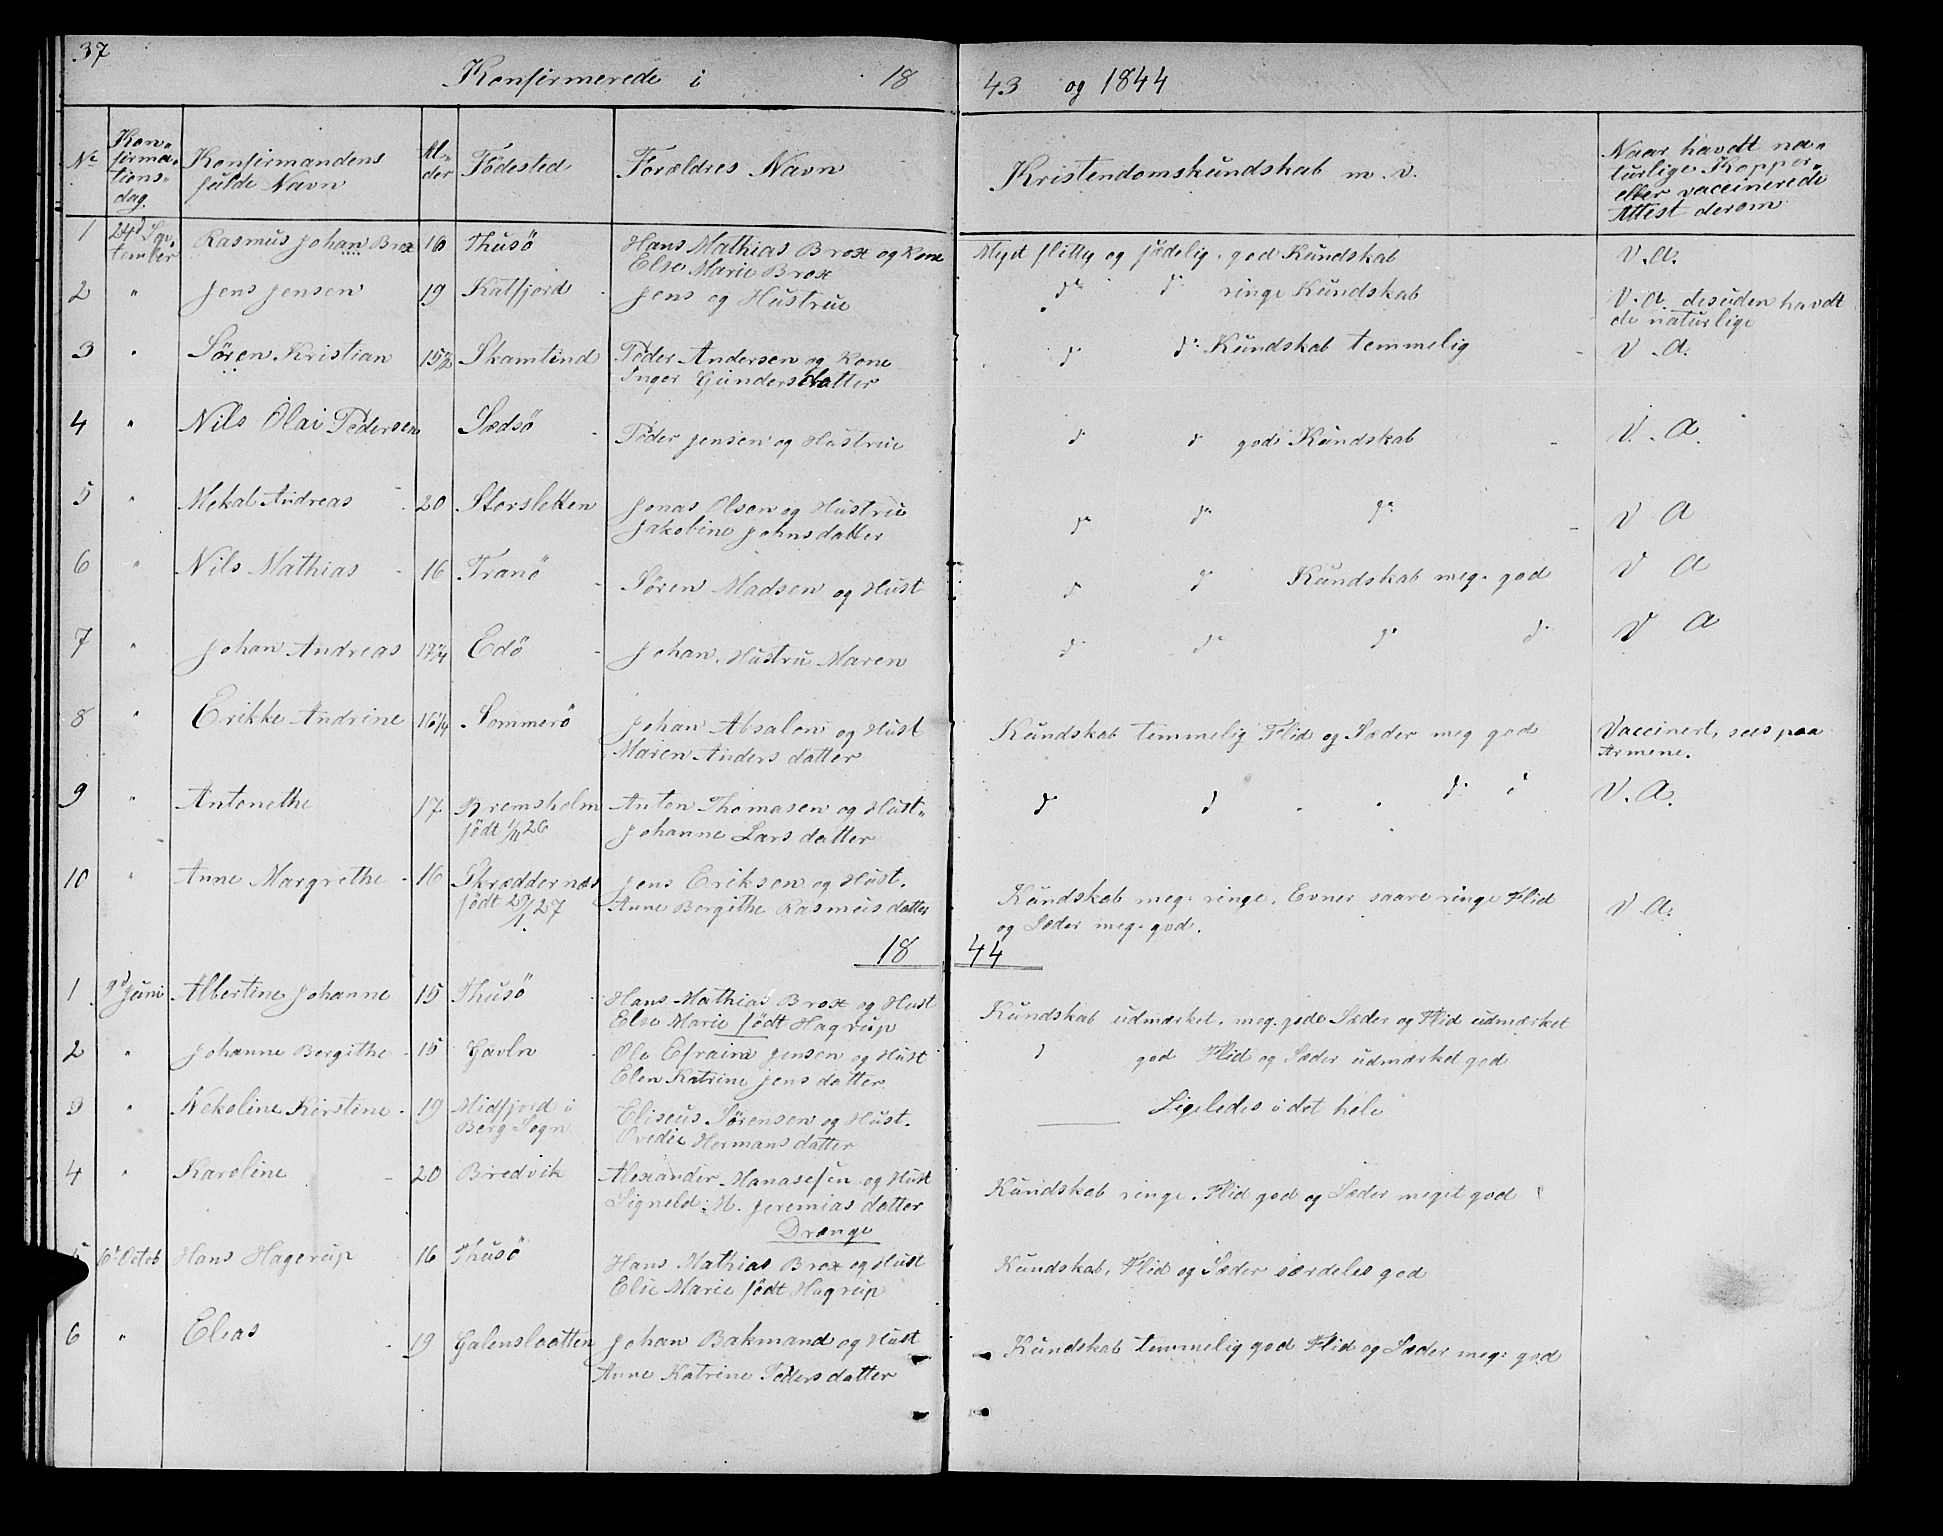 37
Konfirmerede i 18 43 og 1844
No
Kon-
firma-
tions-
dag.
Konfirmandens
fulde Navn
Al-
der
Födested
Forældres Navn
Kristendomskundskab m. v.
Naar havdt na-
turlige Kopper
eller vaccinerede
Attest derom
1 24d Sep-
tember Rasmus Johan Brox 16 Thusö Hans Mathias Brox og Kone
Else Marie Brox
Myst flittig og sædelig. god Kundskab V.A.
2 " Jens Jensen 19 Katfjord Jens og Hustrue do do ringe Kundskab V.A. desuden havdt
de naturlige
3 " Sören Kristian 15½ Skamtind Peder Andersen og Kone
Inger Gundersdatter
d d: Kundskab temmelig V.A.
4 " Nils Olai Pedersen Sædsö Peder Jensen og Hustrue d d god Kundskab V.A.
5 " Mekal Andreas 20 Storsletten Jonas Olsen og Hustrue
Jakobine Johnsdatter
do do do V A
6 " Nils Mathias 16 Tranö Sören Madsen og Hust d d Kundskab meg. god V A
7 " Johan Andreas 17¼ Edö Johan, Hustru Maren d do do d V A
8 " Erikke Andrine 16¼ Sommerö Johan Absalon og Hust
Maren Andersdatter
Kundskab temmelig Flid og Sæder meg god Vaccinert, sees paa
Armene.
9 " Antonethe 17 Bremsholm
födt 1/11 26
Anton Thomasen og Hust-
Johanne Larsdatter
d d " " d: d V.A.
10 " Anne Margrethe 16 Skræddernæs
födt 29/1 27
Jens Eriksen og Hust.
Anne Bergithe Rasmusdatter
Kundskab meg: ringe, Evner saare ringe Flid
og Sæder meg. god.
V A.
18 44
1 9d Juni Albertine Johanne 15 Thusö Hans Mathias Brox og Hust
Else Marie födt Hagrup
Kundskab udmærket. meg. gode Sæder og Flid udmærket
2 " Johanne Bergithe 15 Gavln Ole Efraim Jensen og Hust
Elen Katrine Jensdatter
d god Flid og Sæder udmærket god
3 " Nekoline Kirstine 19 Midfjord i
Berg Sogn
Eliseus Sörensen og Hust.
Ovedie Hermansdatter
Ligeledes i det hele
4 " Karoline 20 Bredvik Alexander Hanasesen og Hust
Signeld: M. Jeremiasdatter
Kundskab ringe. Flid god og Sæder meget god
Drænge
5 6d Octob Hans Hagerup 16 Thusö Hans Mathias Brox og Hust
Else Marie födt Hagrup
Kundskab, Flid og Sæder særdeles god
6 " Elias 19 Galenslaatten Johan Bakmand og Hust
Anne Katrine Pedersdatter
Kundskab temmelig god Flid og Sæder meg: god